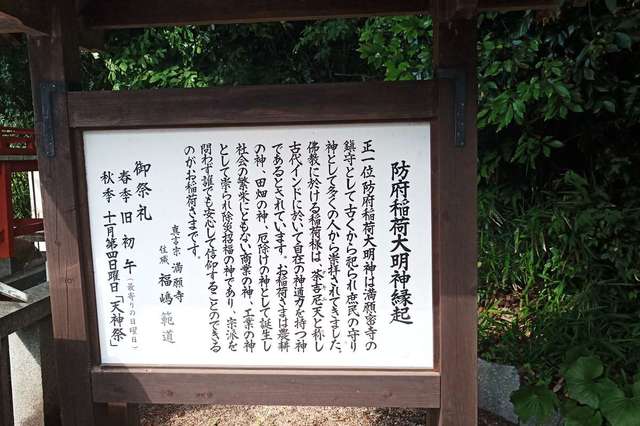 防府稲荷大明神縁起
正一位防府稲荷大明神は満願寺の
鎮守として古くから祀られ庶民の守り
神として多くの人から崇拝されてきました。
佛教に於ける稲荷様は、「荼吉尼天」と称し
古代インドに於いて自在の神通力を持つ神
であるとされています。お稲荷さまは農耕
の神、田畑の神、厄除けの神として誕生し
社会の繁栄にともない商業の神、工業の神
として崇られ除災招福の神であり、宗派を
問わず誰でも安心して信仰することのできる
のがお稲荷さまです。
真言宗 満願寺
住職 福嶋範道
御祭礼
春季 旧初午(最寄りの日曜日)
秋季 十月第四日曜日「天神祭」